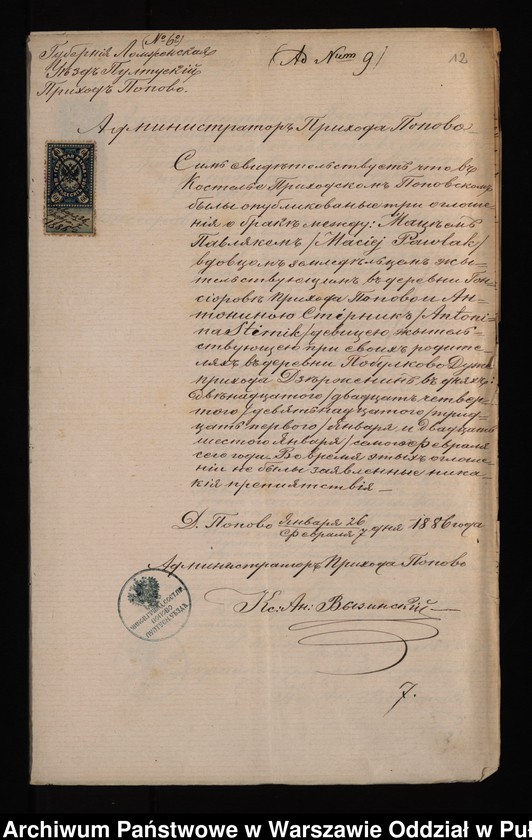 Губернія Ломжинская
(№ 6°)
Уѣздъ Пултускій
Приходъ Попово.
(Ad Num 9)
12
Администраторъ Прихода Попово
Симъ свидѣтельствуетъ что въ
Костелѣ Приходскомъ Поповскомъ
былы опубликованые три оглоше-
нія о бракѣ между: Мацѣемъ
Павлякемъ /Maciej Pawlak/
вдовцомъ земледѣльцомъ жы-
тельствующимъ въ деревни Гон-
сіоровѣ Прихода Попово и Ан-
тониною Стѣрникъ /Antoni-
na Stirnik/ девицею жытель-
ствующею при своихъ родите-
ляхъ въ деревни Побулково Дуже
прихода Дзѣржениинъ въ дняхъ:
двѣнадцатого /двадцать четвер-
того/ девятьнадцатого /трид-
цать первого/ Января и двадцать
шестого Января / самого Февраля
сего года. Во время этыхъ оглоше-
ній не былы заявленные ника-
кія препиятствія —
Д. Попово Января 26
Февраля 7 дня 1886 года
Администраторъ Прихода Попово
Кс: Ан: Вызинскій
7.
Archiwum Państwowe w Warszawie Oddział w Puł